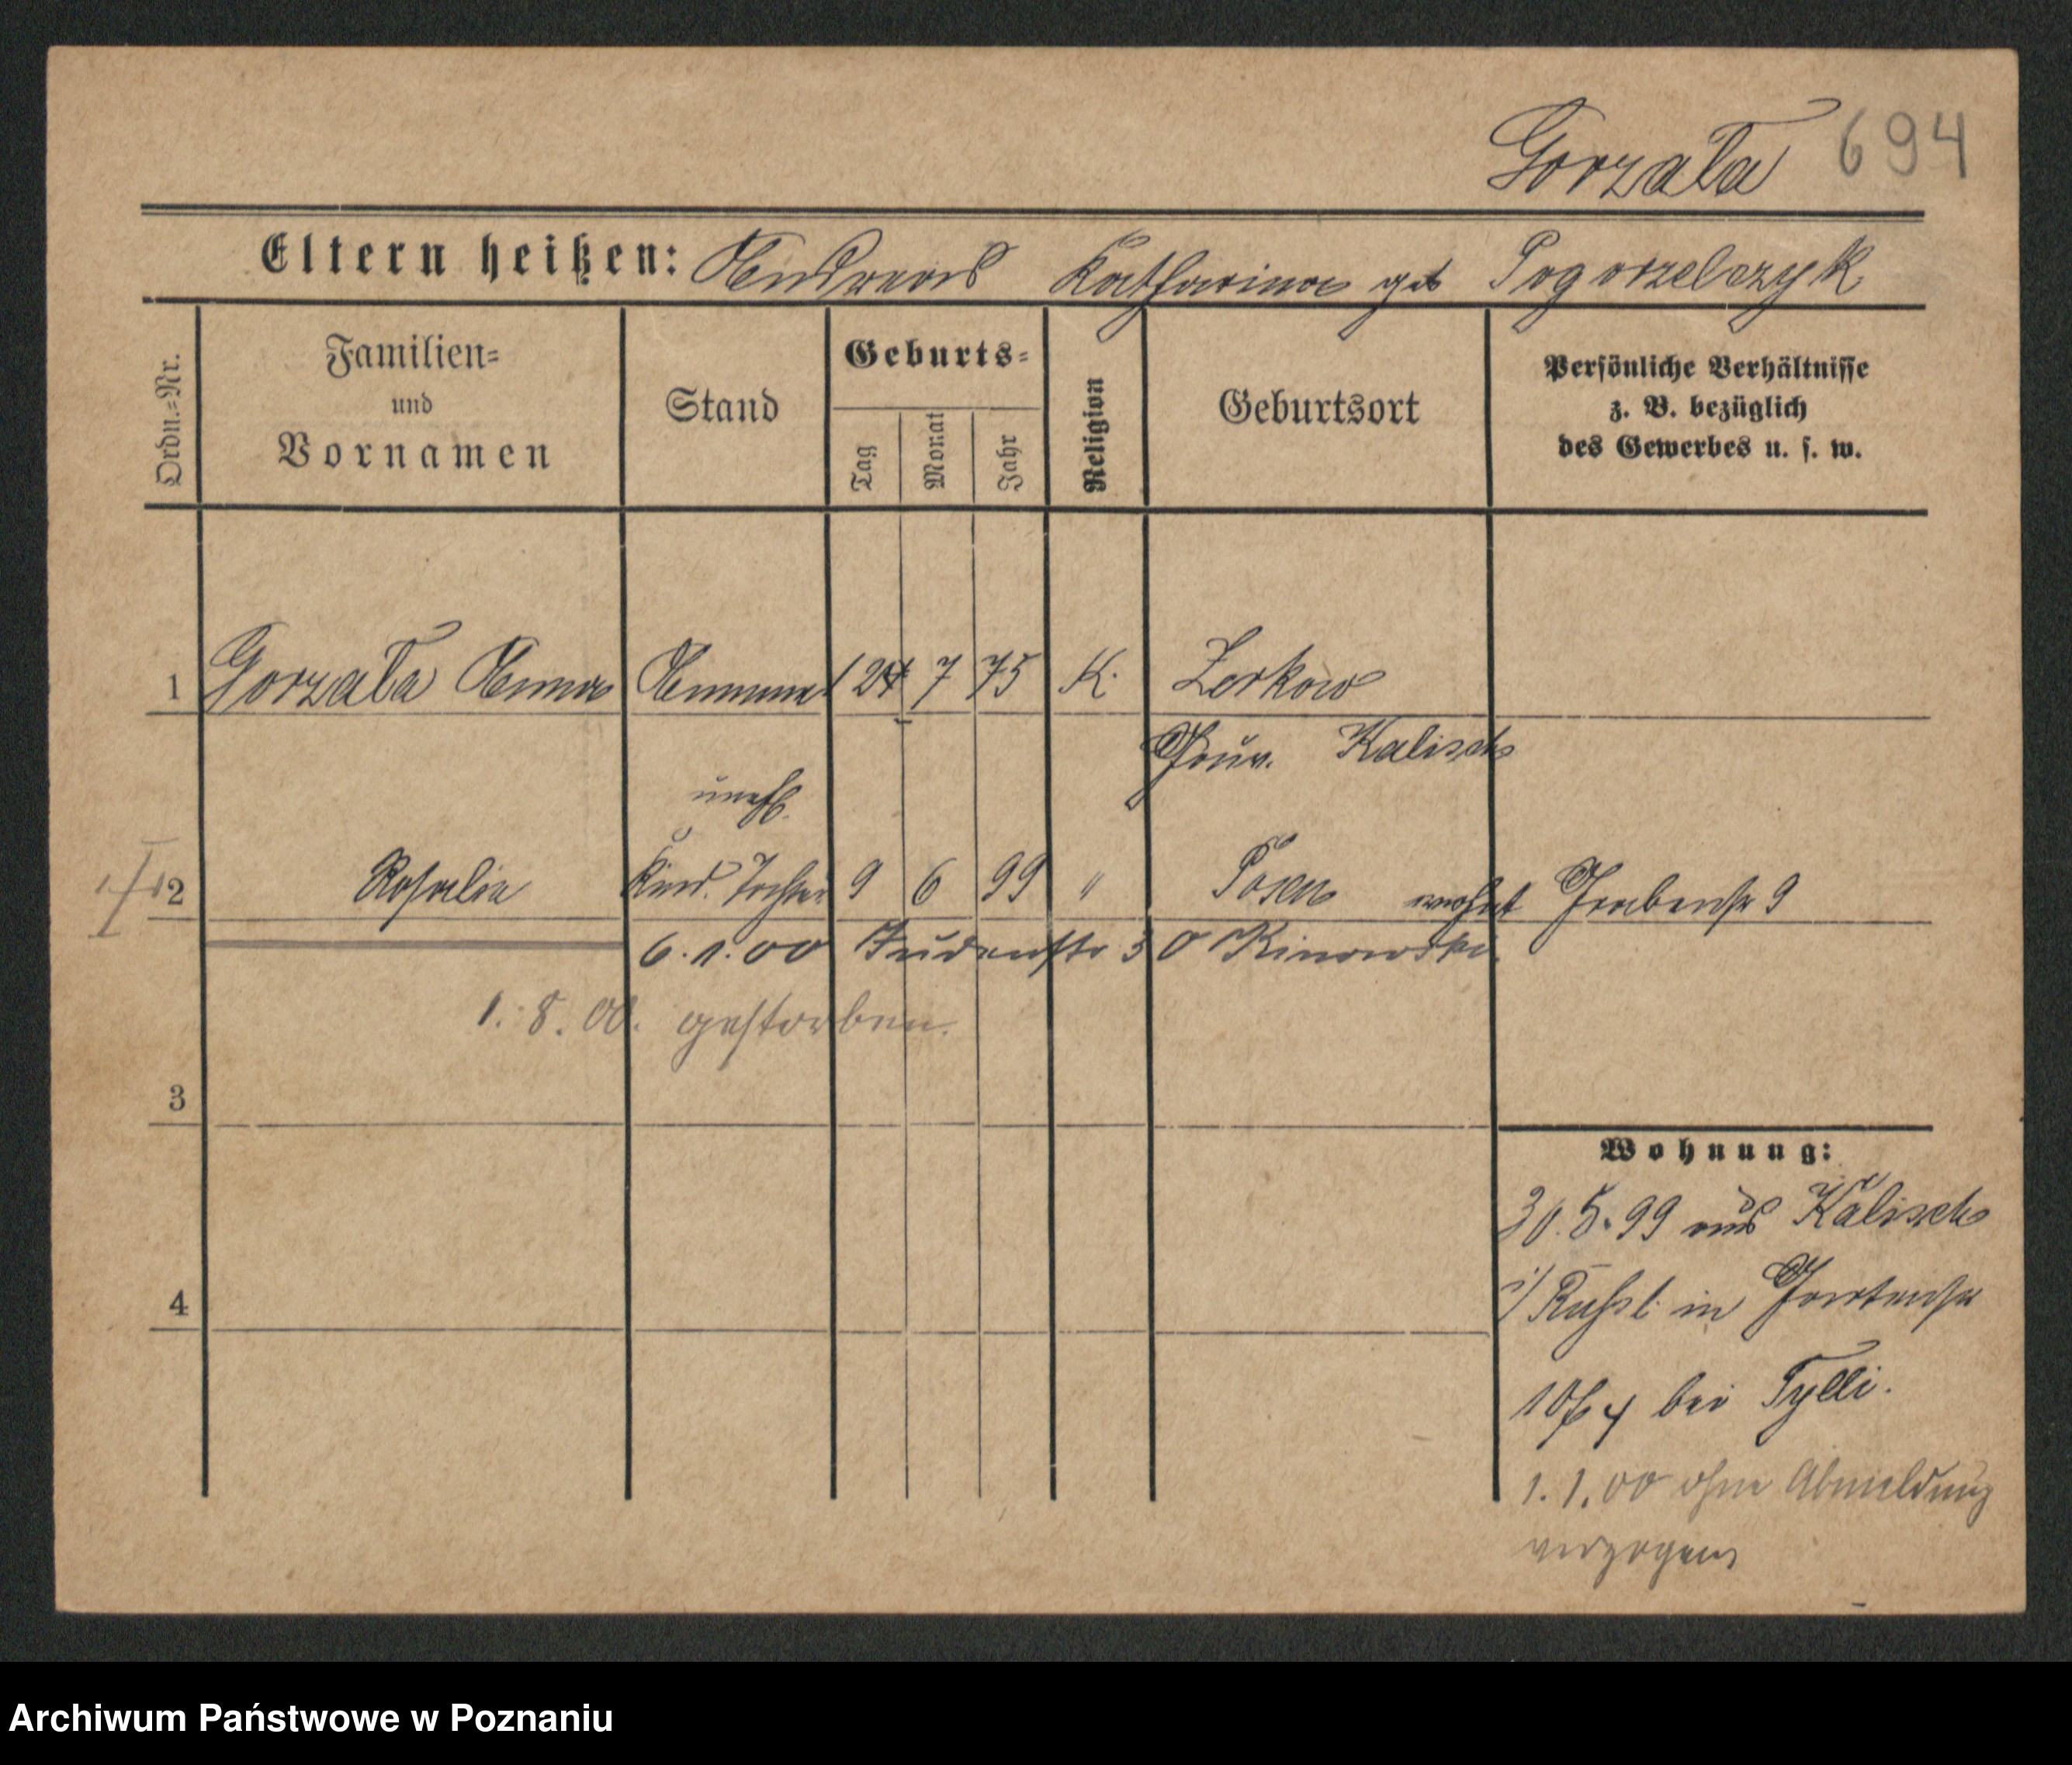 Gorzała 694
Eltern heißen: Andreas Katharina geb Pogorzelczyk
Ordn.=Nr.
Familien=
und
Vornamen
Stand
Geburts=
Tag
Monat
Jahr
Religion
Geburtsort
Persönliche Verhältnisse
z. B. bezüglich
des Gewerbes u. s. w.
1 Gorzała Anna 24 7 75 K. Zerkow
Gouv. Kalisch
uneh.
2 Rosalie Kind. Tochter 9 6 99 " Posen wohnt Grabenstr 9
6.1.00 Judenstr 30
1.8.00. gestorben.
3
4
Wohnung:
30.5.99 aus Kalisch
i/ Rußl. in Gartenstr
bei Tylli.
1.1.00 ohne Abmeldung
verzogen
Archiwum Państwowe w Poznaniu